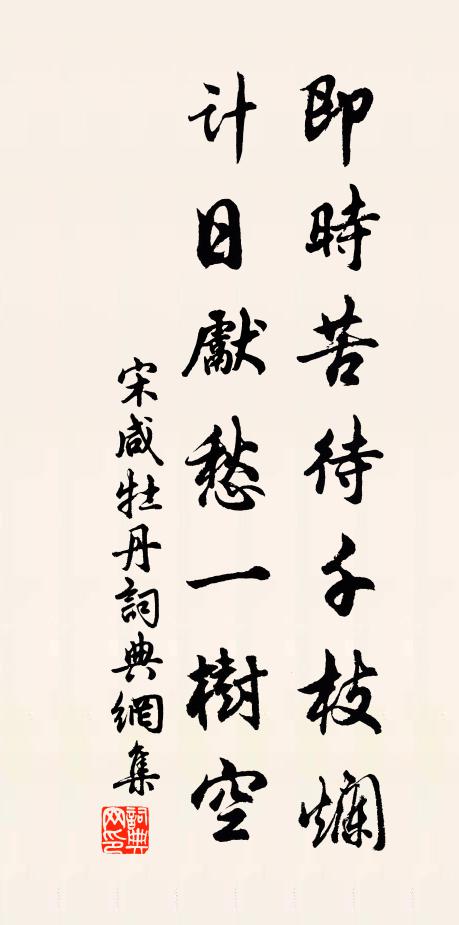 即時苦待千枝爛
計日獻愁一樹空
宋咸牡丹詞典網集
詞典
网印